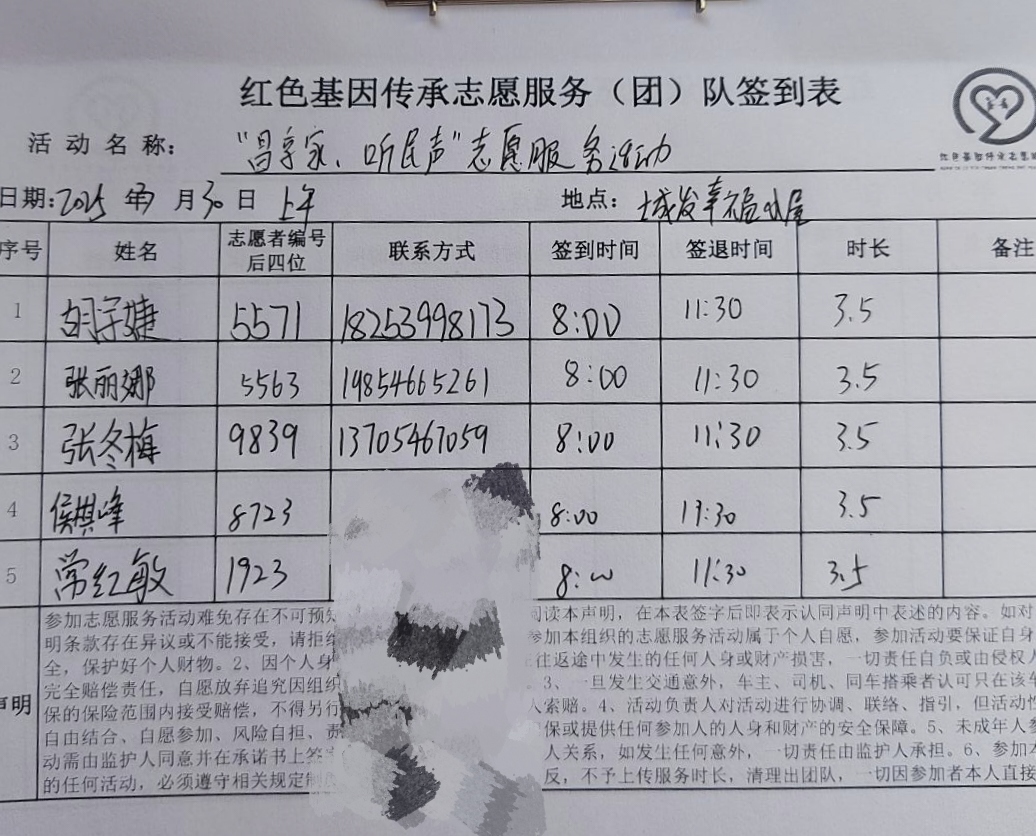 红色基因传承志愿服务（团）队签到表
活动名称： “昌享家、听民声”志愿服务活动
日期：2025年 月30日 上午 地点：城发幸福小屋
序号 姓名 志愿者编号后四位 联系方式 签到时间 签退时间 时长 备注
1 胡宇婕 5571 18253998173 8:00 11:30 3.5
2 张丽娜 5563 19854665261 8:00 11:30 3.5
3 张冬梅 9839 13705467059 8:00 11:30 3.5
4 侯棋峰 8723 8:00 11:30 3.5
5 常红敏 1923 8:00 11:30 3.5
声明
参加志愿服务活动难免存在不可预知 阅读本声明，在本表签字后即表示认同声明中表述的内容。如对
明条款存在异议或不能接受，请拒绝 参加本组织的志愿服务活动属于个人自愿，参加活动要保证自身
全，保护好个人财物。2、因个人身 往返途中发生的任何人身或财产损害，一切责任自负或由侵权人
完全赔偿责任，自愿放弃追究因组织 3、一旦发生交通意外，车主、司机、同车搭乘者认可只在该车
保的保险范围内接受赔偿，不得另行 人索赔。4、活动负责人对活动进行协调、联络、指引，但活动性
自由结合、自愿参加、风险自担、责 保或提供任何参加人的人身和财产的安全保障。5、未成年人参
动需由监护人同意并在承诺书上签字 人关系，如发生任何意外，一切责任由监护人承担。6、参加
的任何活动，必须遵守相关规定制度 反，不予上传服务时长，清理出团队，一切因参加者本人直接